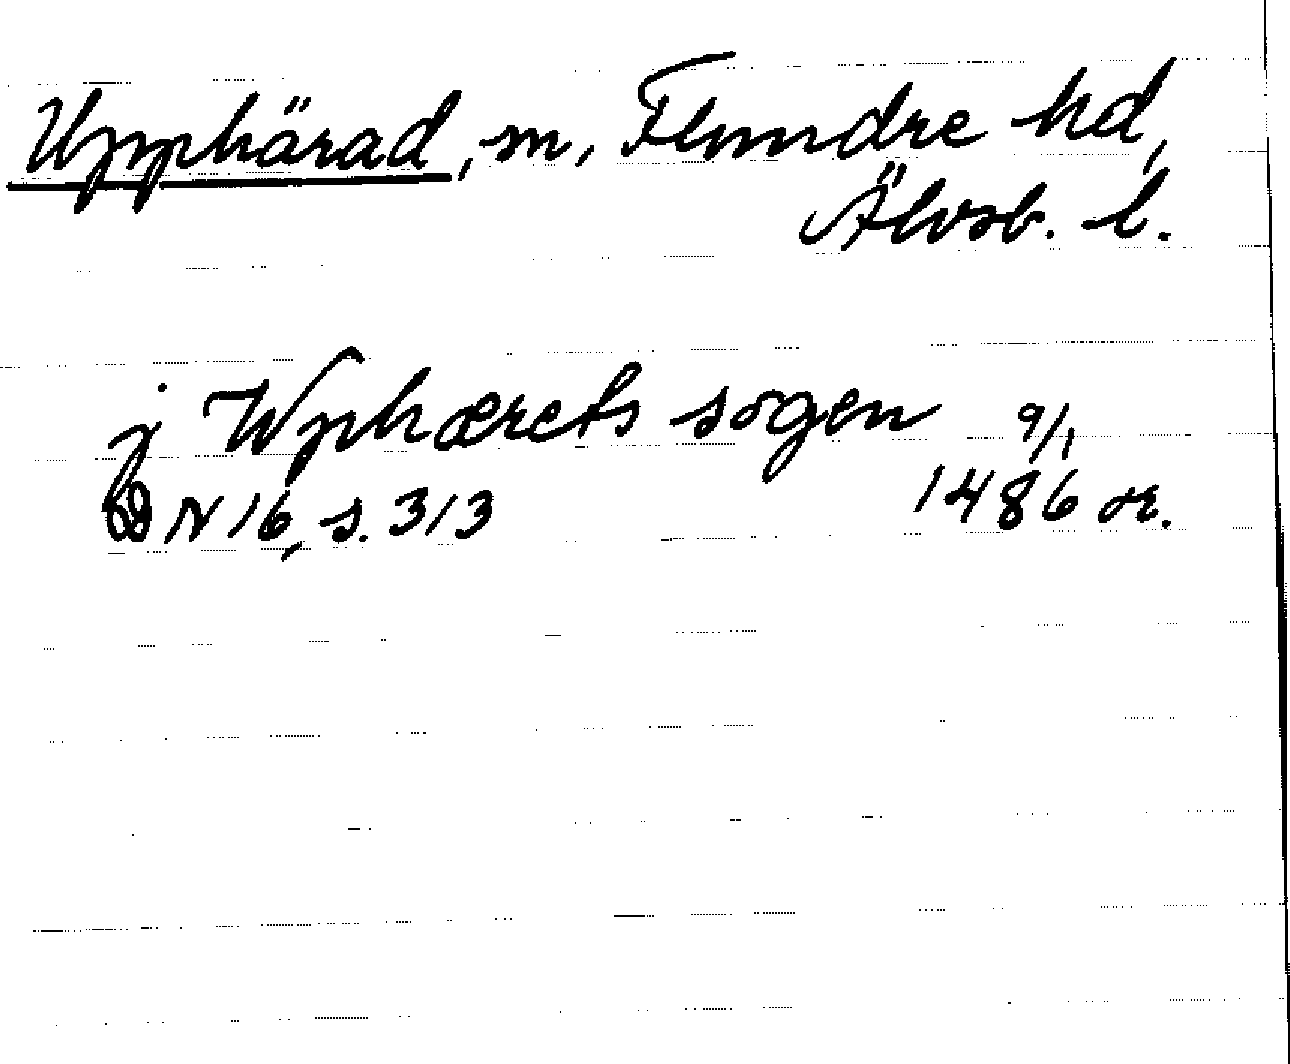 Upphärad, sn, Flundre hd,
Älvsb. l.
j Wphærets sogen 9/1
DN 16, s. 313 1486 or.